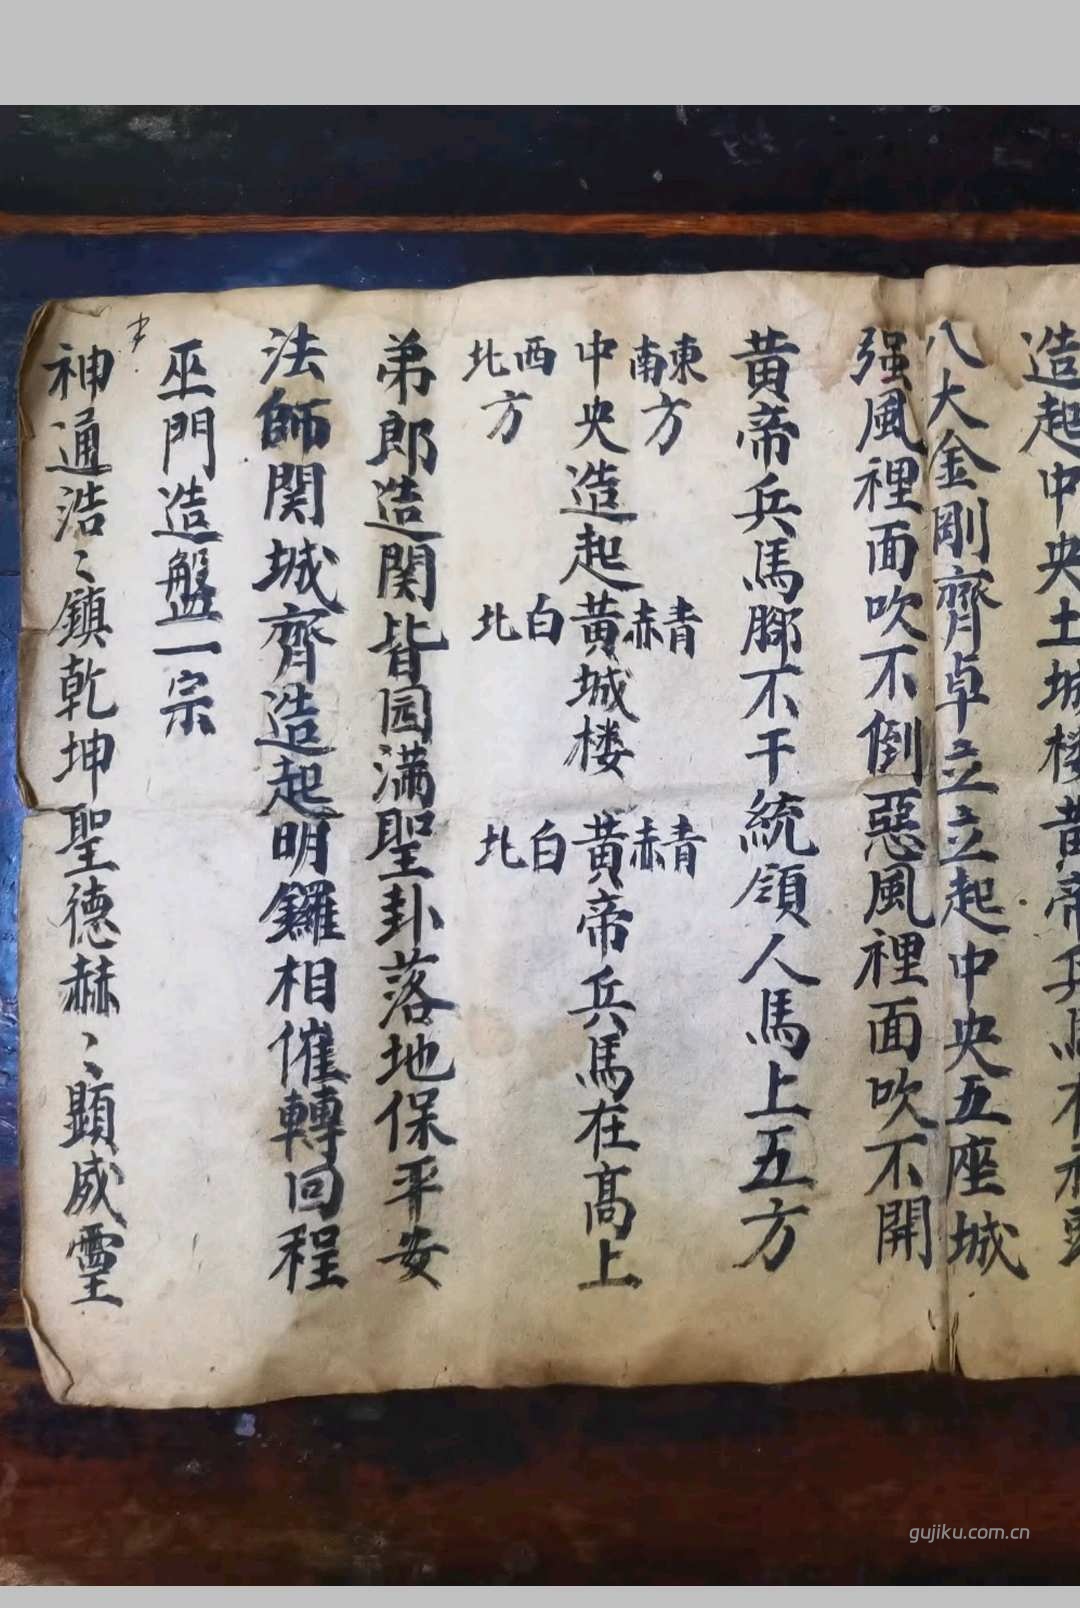 造起中央土城楼黄帝兵馬
八大金剛齊卓立立起中央五座城
强風裡面吹不倒惡風裡面吹不開
黄帝兵馬腳不干統領人馬上五方
東南方 青赤 青赤
中央造起黄城楼 黄帝兵馬在高上
西北方 白北 白北
弟郎造関皆园满聖卦落地保平安
法師関城齊造起明鑼相催轉回程
巫門造盤一宗
神通浩〻鎮乾坤聖德赫〻顕威霊
gujiku.com.cn